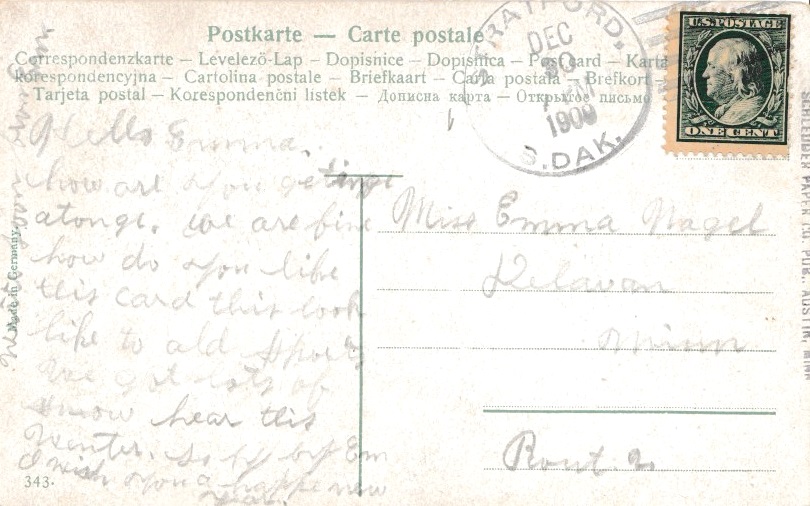 Postkarte — Carte postale
Correspondenzkarte – Levelező-Lap – Dopisnice – Dopisnica – Post card – Karta
korespondencyjna – Cartolina postale – Briefkaart – Carta postala – Brefkort –
Tarjeta postal – Korespondenční listek – Дописна карта – Открытое письмо
STRATFORD.
DEC
1909
S.DAK.
U.S. POSTAGE
ONE CENT
Hello Emma.
how are you
atonge. we are fine
how do you like
this card this look
like to old sports
we got lots of
snow hear this
winter. So by by Em
I wish you a happe new
year.
Miss Emma Nagel
Delavan
Minn
Rout. 2
Made in Germany.
343.
PUBL. AUSTIN, MINN